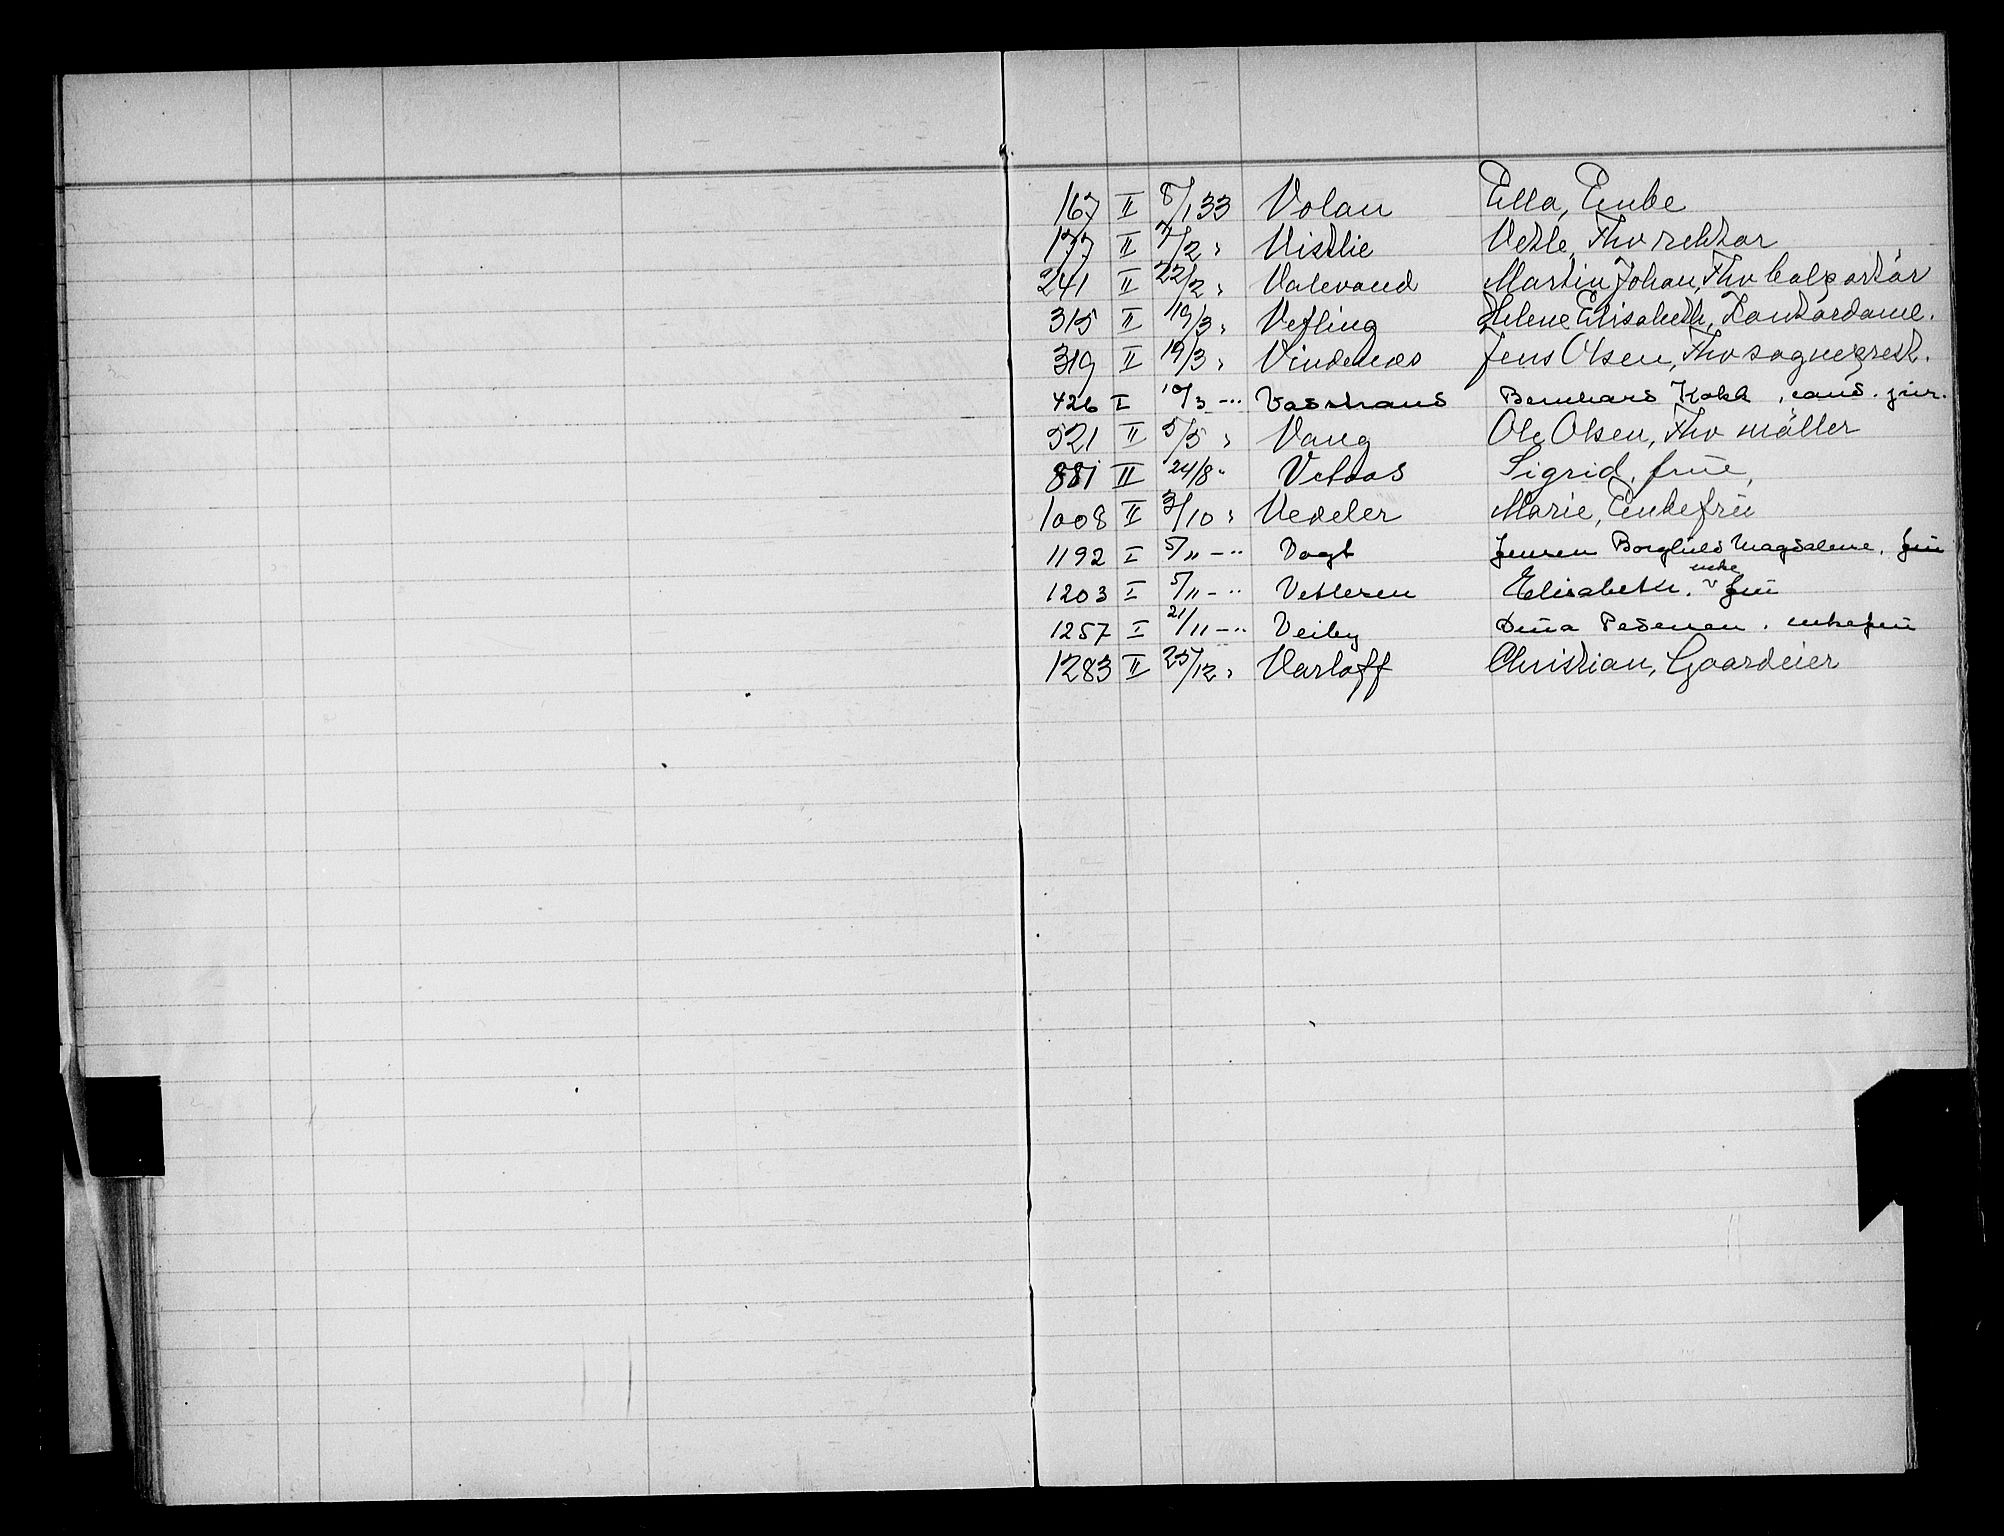 167 II 8/1 33 Volan Ella, Enke
177 II 7/2 " Vistlie Vetle, Fhv rektor
241 II 22/2 " Valevand Martin Johan, Fhv Colportør
315 II 19/3 " Vefling Helene Elisabeth, Kontordame.
319 II 19/3 " Vindenes Jens Olsen, Fhv sogneprest.
426 I 10/3 - " Vasstrand Bernhard Kokk, cand. jur.
521 II 5/5 " Vang Ole Olsen, Fhv møller
881 II 24/8 " Vetaas Sigrid, frue,
1008 II 3/10 " Vedeler Marie, Enkefru
1192 I 5/11 - " Vogt Jensen Borghild Magdalene, fru
1203 I 5/11 - " Vetlesen Elisabeth, enke fru
1257 I 21/11 - " Veiby Dina Pedersen, enkefru
1283 II 25/12 " Varloff Christian, Gaardeier